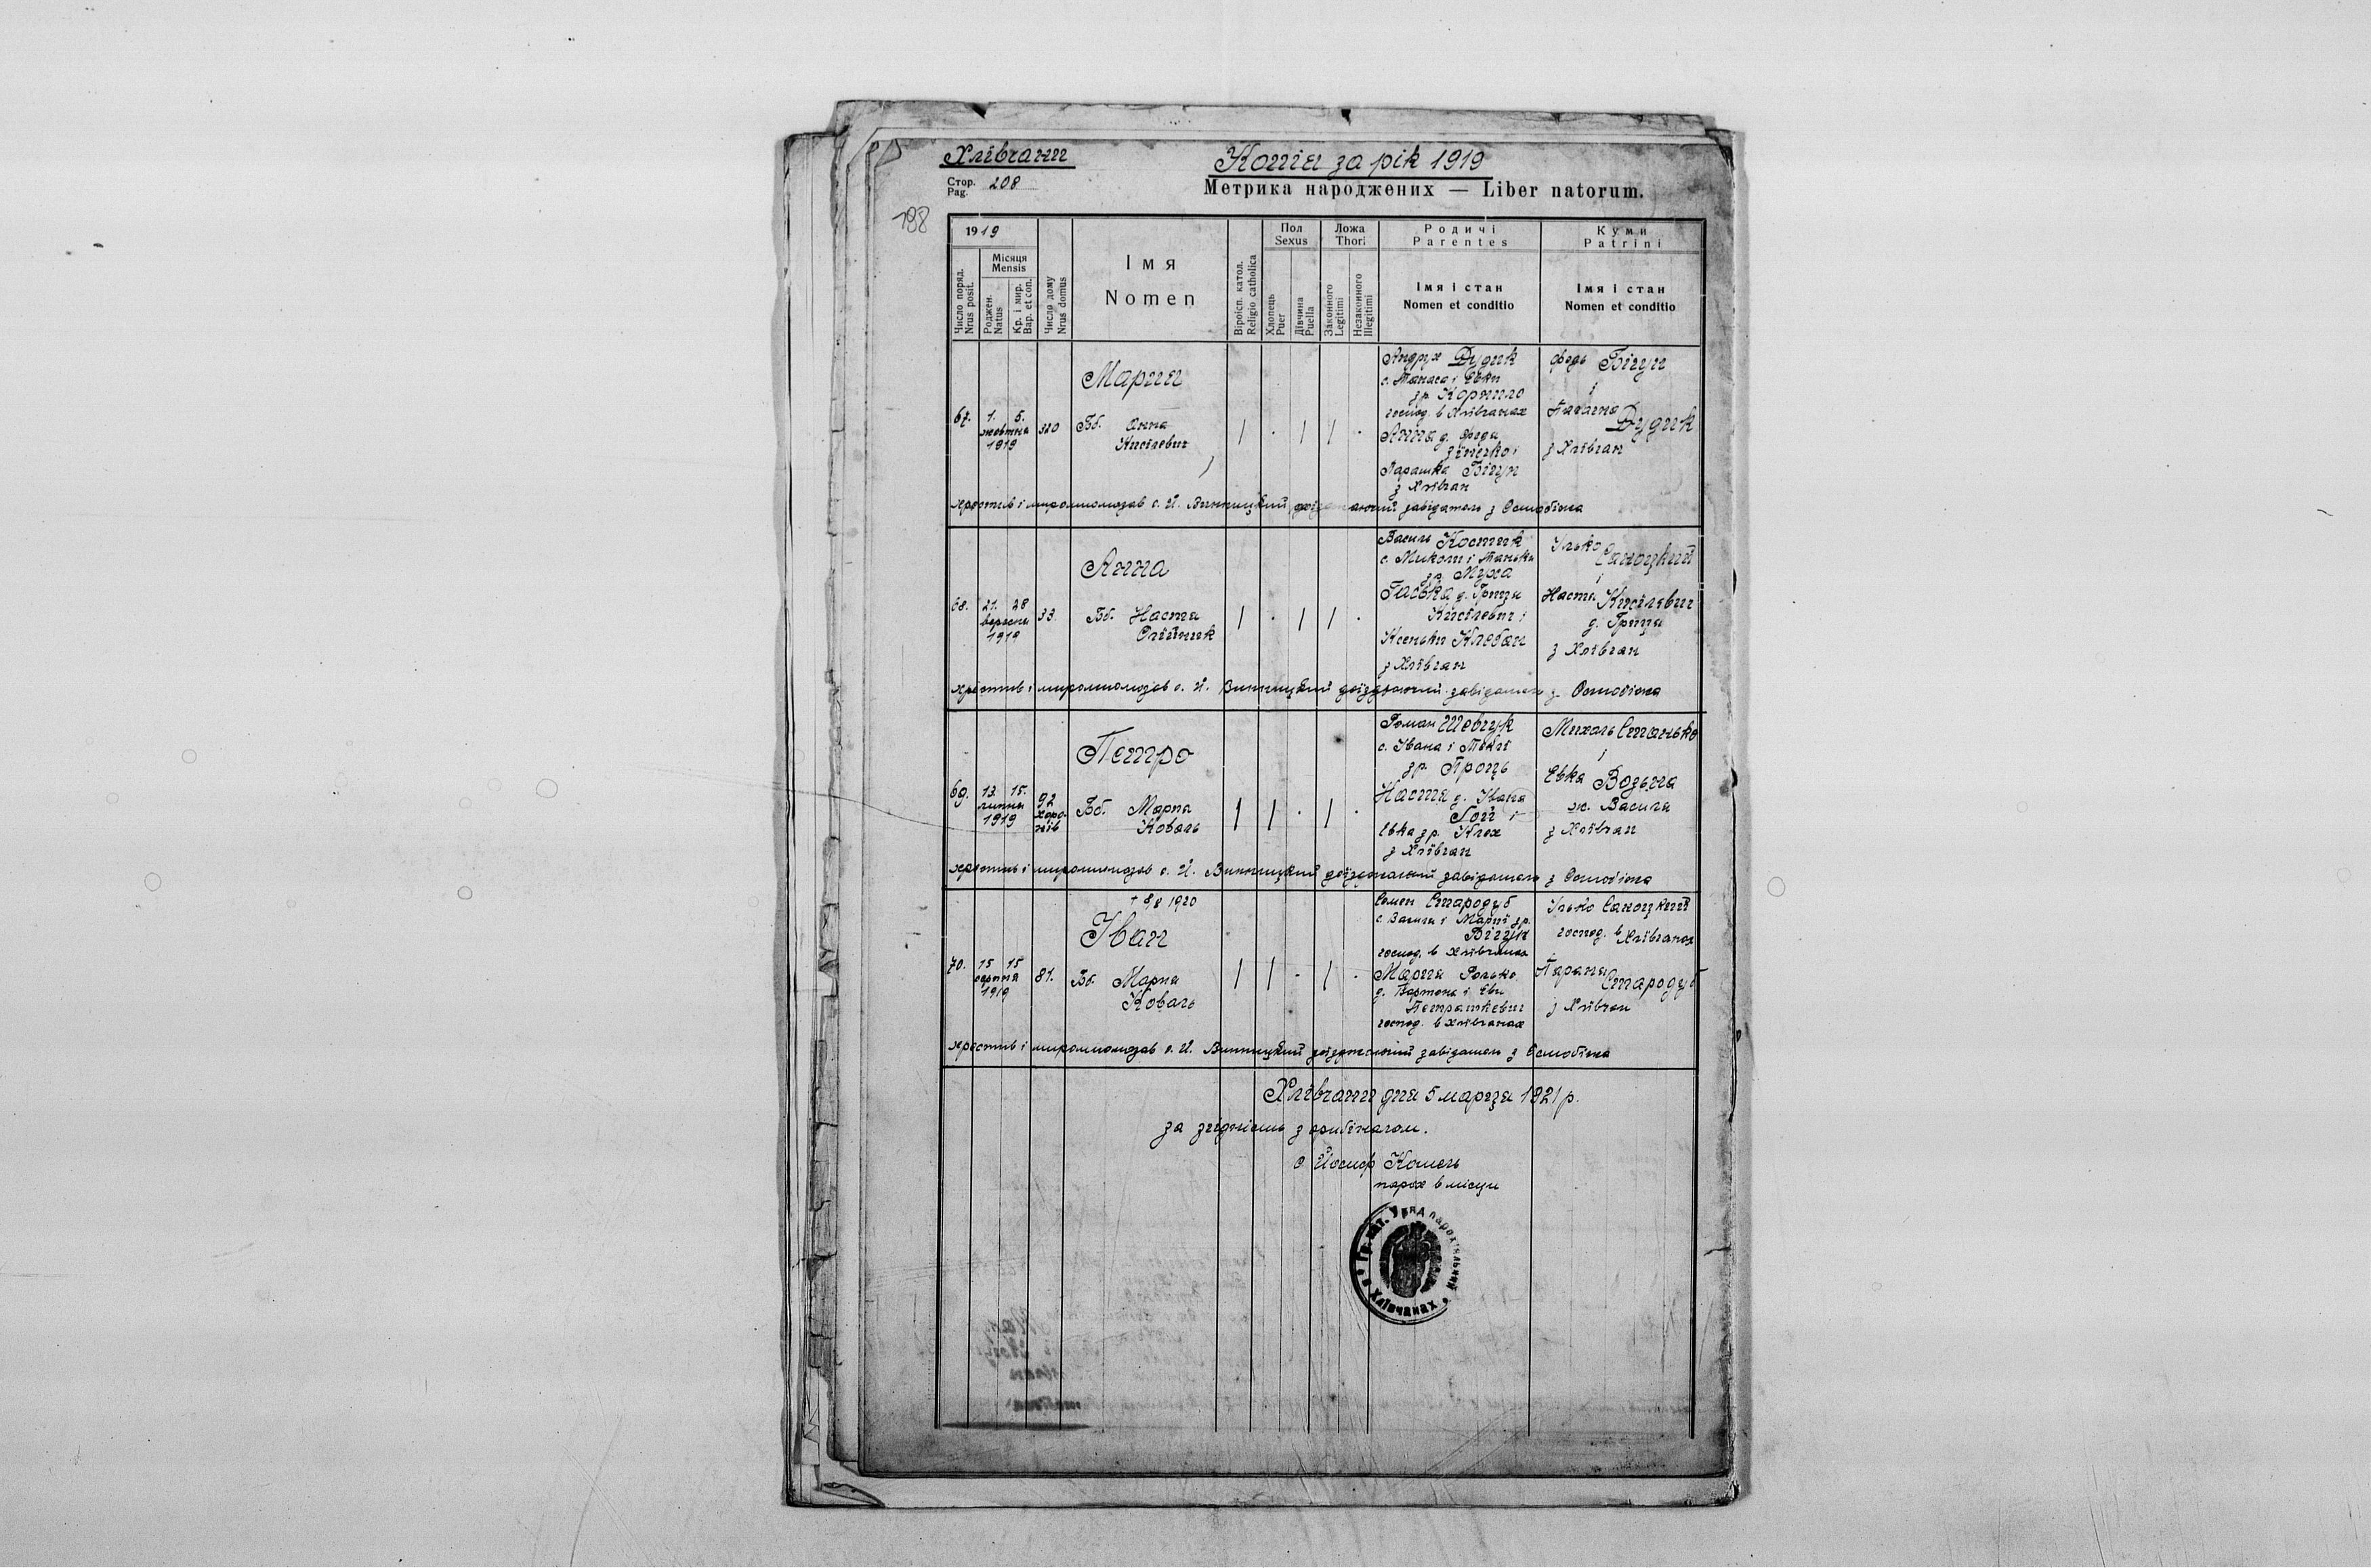 Хлївчани
Копія за рік 1919
Стор.
Pag. 208
Метрика народжених — Liber natorum.
198
1919
Число поряд.
Nrus posit.
Місяця
Mensis
Роджен.
Natus
Кр. і мир.
Bap. et con.
Число дому
Nrus domus
Імя
Nomen
Віроісп. катол.
Religio catholica
Пол
Sexus
Хлопець
Puer
Дївчина
Puella
Ложа
Thori
Законного
Legitimi
Незаконного
Illegitimi
Родичі
Parentes
Імя і стан
Nomen et conditio
Куми
Patrini
Імя і стан
Nomen et conditio
67.
1. 5.
жовтня
1919
320
Мария
Бб. Анна
Кисїлевич
Андрух Дудик
с. Танаса і Евки
зр. Корнило
господ. в Хлївчанах
Анна д. Федя
і
Парашка Бігун
з Хлївчан
Федь Бігун
і
Дудик
з Хлївчан
хрестив і миропомазав о. Й. Винницкий доїзджаючий завідатель з
68.
21. 28
вересня
1919
33.
Анна
Бб. Настя
Олїйник
Василь Костик
с. Миколи і Таньки
зр. Муха
Гаська д. Гриця
Кисїлевич і
Ксеньки Клебан
з Хлївчан
Ілько Саноцкий
і
Настя Кисїлевич
д. Гриця
з Хлївчан
хрестив і миропомазав о. Й. Винницкий доїзджаючий завідатель з
69.
13. 15.
липня
1919
92
Хоро-
нїв
Петро
Бб. Марія
Коваль
Роман Шевчук
с. Івана і Теклї
зр. Проць
Настя д. Івана
Гой і
Евка зр. Клох
з Хлївчан
Михаль Станько
і
Евка Возьна
ж. Василя
з Хлївчан
хрестив і миропомазав о. Й. Винницкий доїзджаючий завідатель з
70.
15 15
серпня
1919
81.
† 8/8 1920
Іван
Бб. Марія
Коваль
Семен Стародуб
с. Василя і Марії зр.
Бігун
господ. в Хлївчанах
Марія Ролько
д. Евки
Петрашкевич
господ. в Хлївчанах
Ілько Саноцкий
господ. в Хлївчанах
Параня Стародуб
з Хлївчан
хрестив і миропомазав о. Й. Винницкий доїзджаючий завідатель з
Хлївчани дня 5 марця 1921 р.
за згідність з
о Йосиф Комень
парох в місци
Гр. кат. Уряд парохіяльний
в Хлївчанах